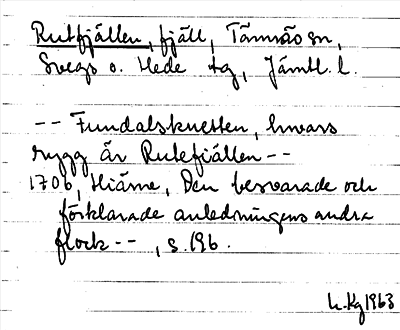 Rutfjällen, fjäll, Tännäs sn,
Svegs o. Hede tg, Jämtl. l.
-- Fundalsknetten, hwars
rygg är Rutefiällen --
1706, Hiärne, Den beswarade och
förklarade anledningens andra
flock --, s. 196.
L. Kg 1963